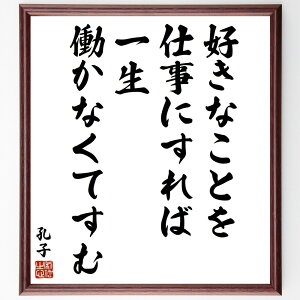 好きなことを
仕事にすれば
一生
働かなくてすむ
孔子